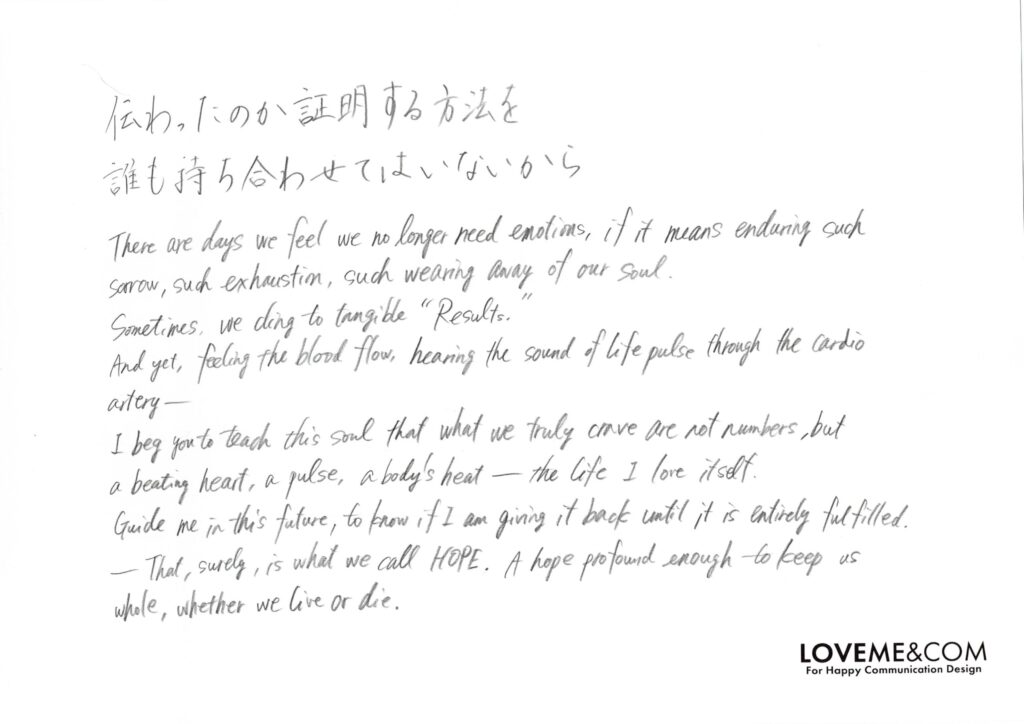 伝わったのか証明する方法を
誰も持ち合わせてはいないから
There are days we feel we no longer need emotions, if it means enduring such
sorrow, such exhaustion, such wearing away of our soul.
Sometimes, we cling to tangible "Results."
And yet, feeling the blood flow, hearing the sound of life pulse through the cardio
artery—
I beg you to teach this soul that what we truly crave are not numbers, but
a beating heart, a pulse, a body's heat — the life I love itself.
Guide me in this future, to know if I am giving it back until it is entirely fulfilled.
— That, surely, is what we call HOPE. A hope profound enough to keep us
whole, whether we live or die.
LOVEME&COM
For Happy Communication Design